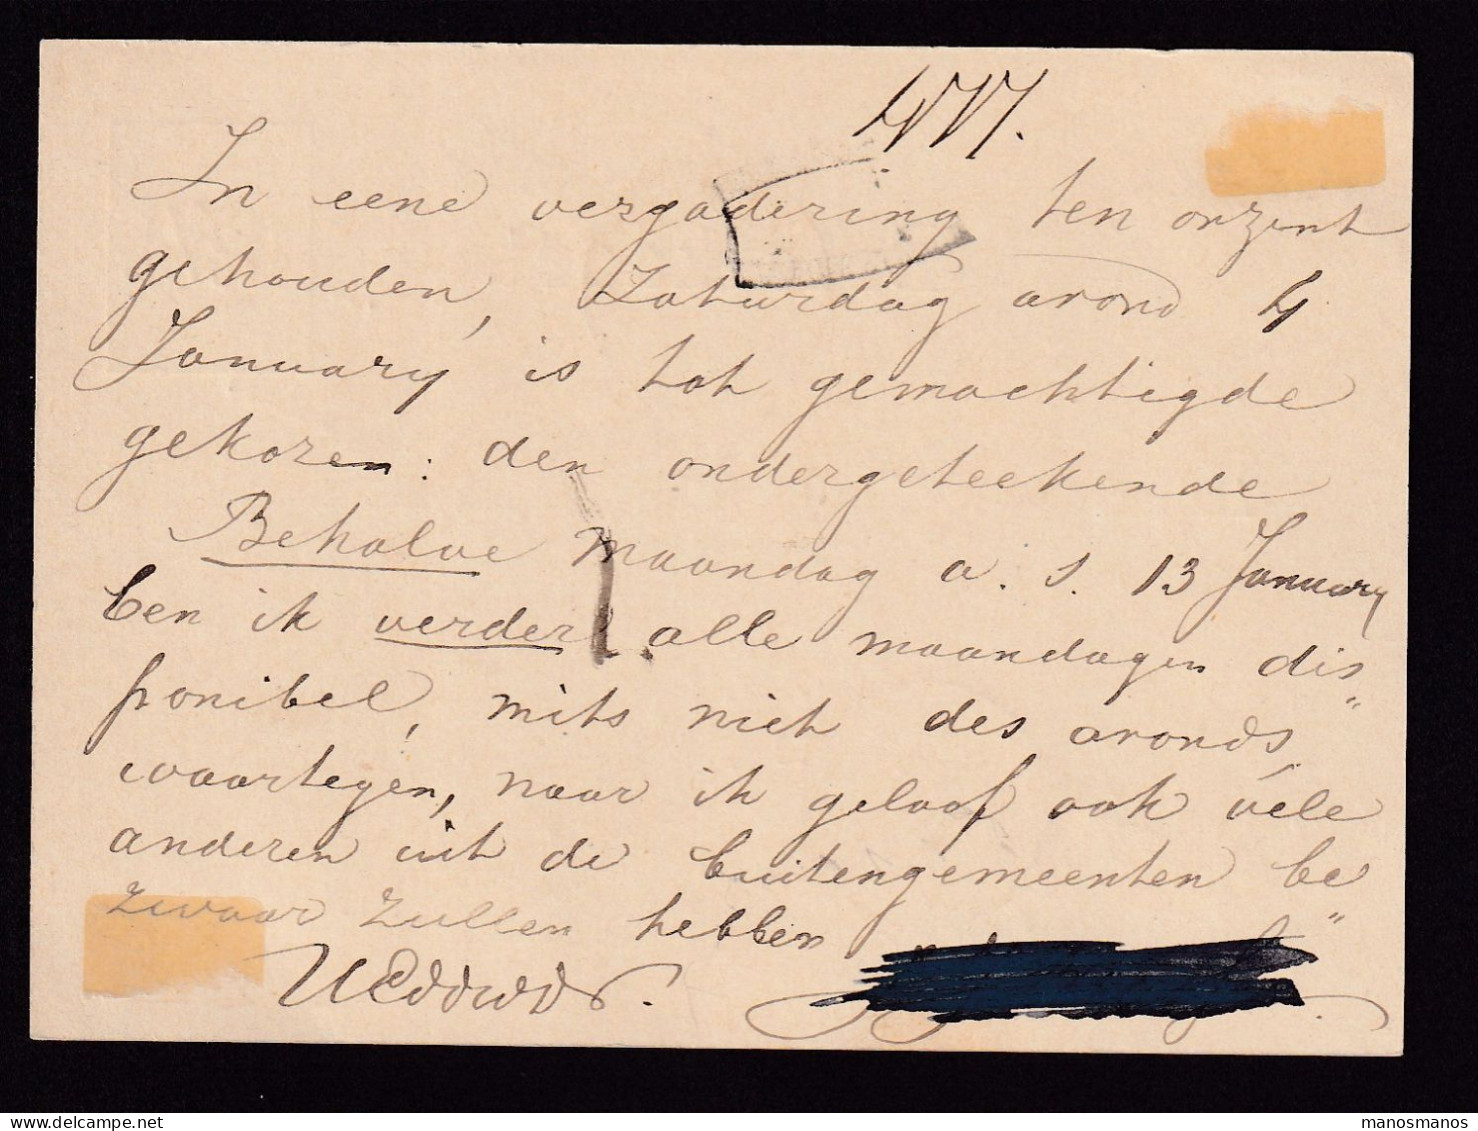 477.
In eene vergadering ten onzent
gehouden, Zaturdag avond 4
January is tot gemachtigde
gekozen: den ondergeteekende
Behalve maandag a. s. 13 January
ben ik verder alle maandagen dis
ponibel, mits niet des avonds,
waartegen, naar ik geloof ook véle
anderen uit de buitengemeenten be
zwaar zullen hebben
UEddwdr.
manosmanos